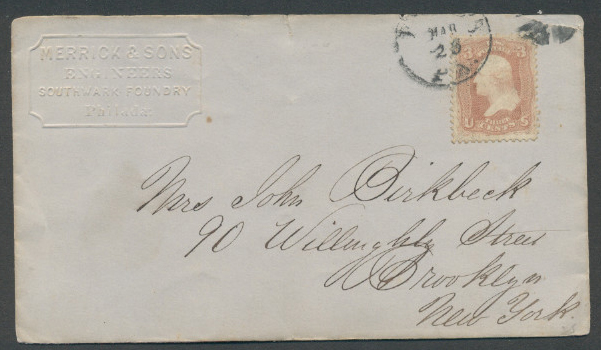 MERRICK & SONS
ENGINEERS
SOUTHWARK FOUNDRY
Philada.
MAR
23
PA.
3
U THREE CENTS S
Mrs John Birkbeck
90 Willoughby Street
Brooklyn
New York.